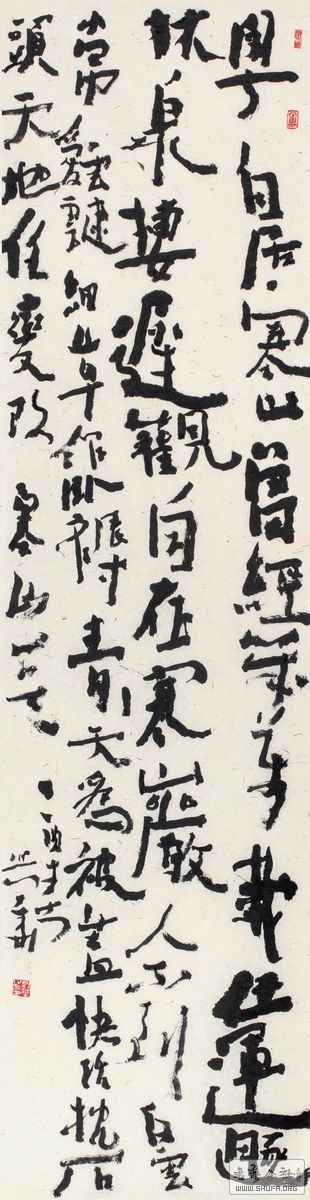 粵自居寒山曾經幾萬載任運遯
林泉棲遲觀自在寒巖人不到白雲
常靉靆細草作臥褥青天為被蓋快活枕石
頭天地任變改 寒山
WWW.SHUFA.ORG